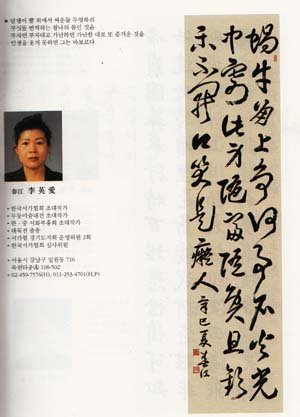 달팽이 뿔 위에서 싸운들 무엇하리
부싯돌 번쩍하는 찰나의 몸인 것을
부자면 부자대로 가난하면 가난한 대로 또 즐거운 것을
인생을 웃지 못하면 그는 바보로다
春江 李英愛
• 한국서가협회 초대작가
• 무등미술대전 초대작가
• 한 · 중 서화부흥회 초대작가
• 출품
• 서가협 경기도지회 운영위원 2회
• 한국서가협회 심사위원
• 서울시 강남구 일원동 716
목련타운 108-502
• 02-459-7576(H), 011-253-4701(H.P)
蝸牛角上爭何事石火光
中寄此身隨富隨貧且歡
樂不開口笑是癡人 辛巳夏 春江